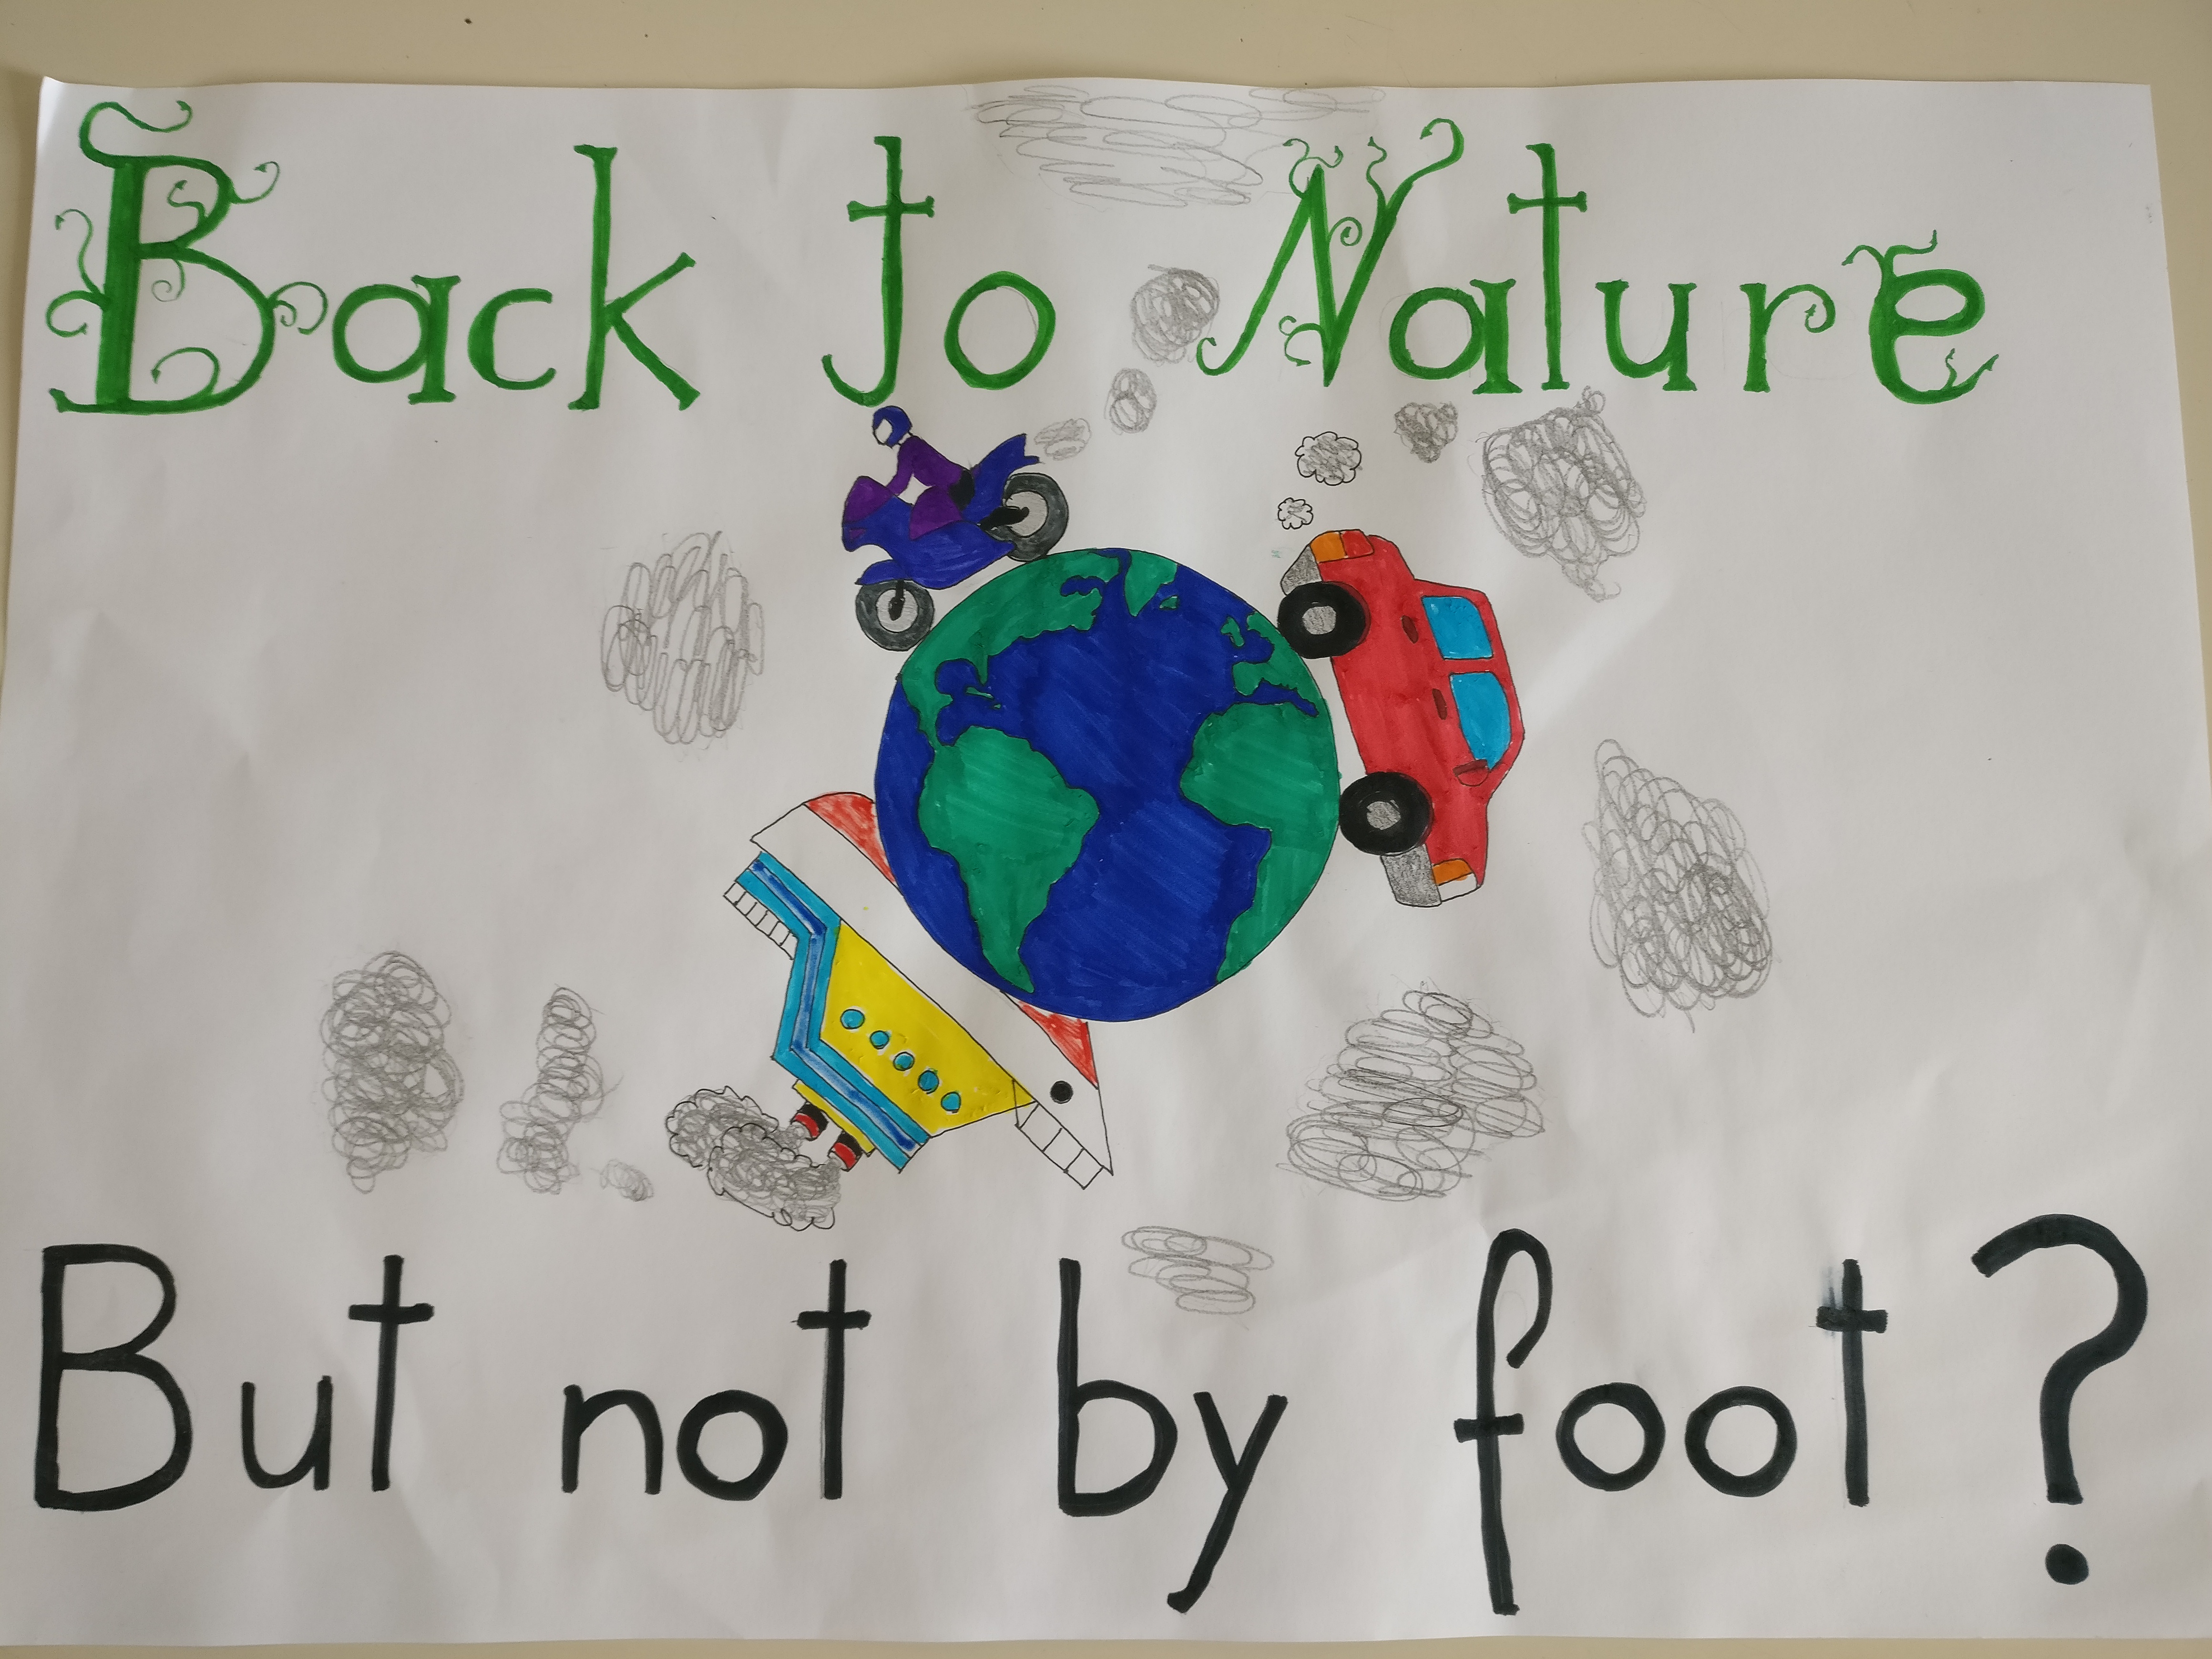 Back to Nature
But not by foot?